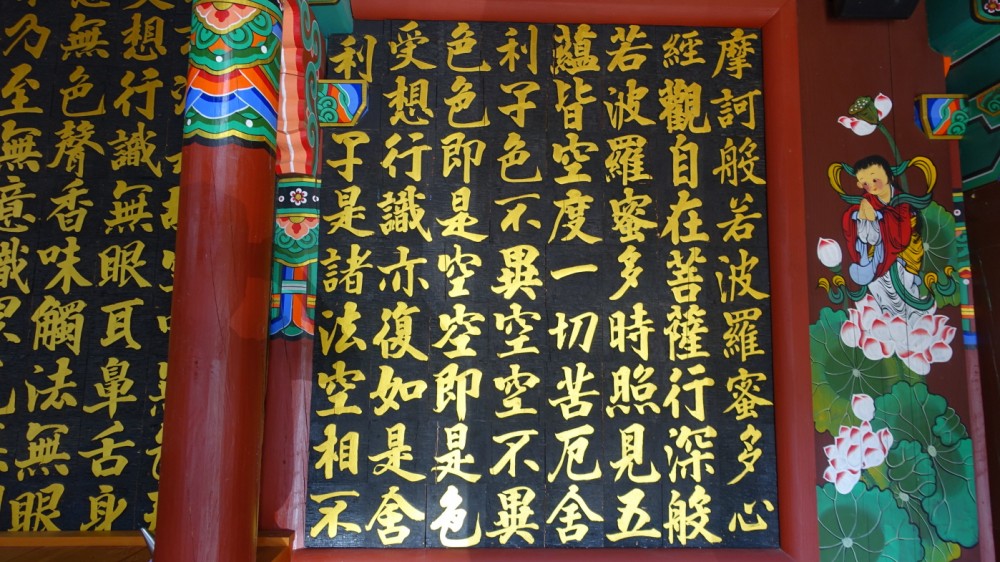 摩訶般若波羅蜜多心
經觀自在菩薩行深般
若波羅蜜多時照見五
蘊皆空度一切苦厄舍
利子色不異空空不異
色色即是空空即是色
受想行識亦復如是舍
利子是諸法空相不
想行識無眼耳鼻舌身
無色聲香味觸法無眼
乃至無意識界